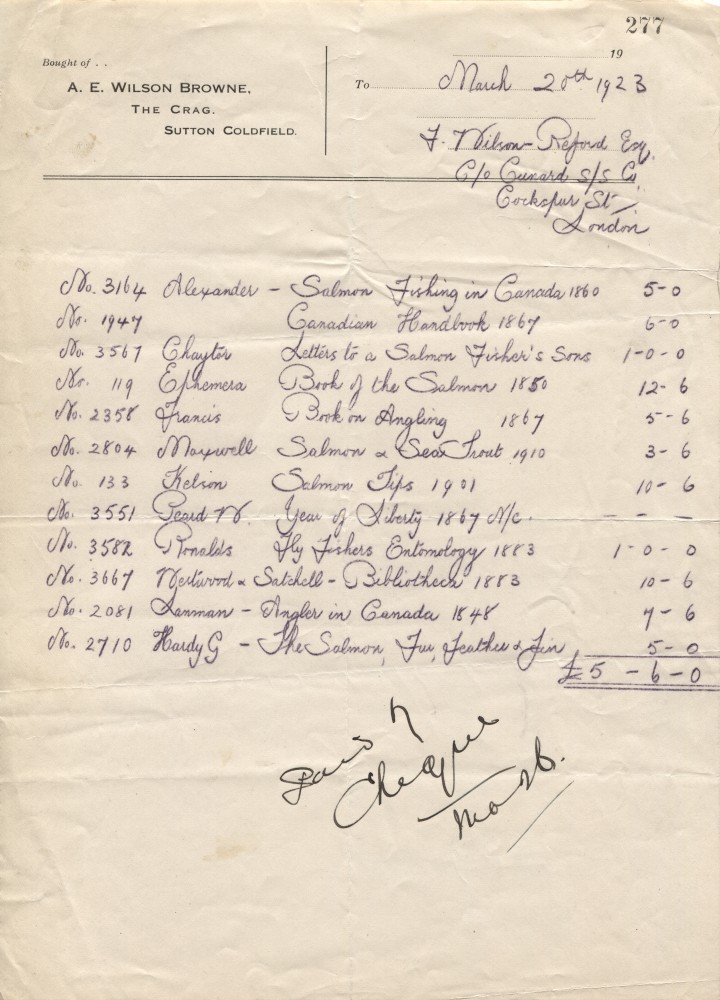 277
19
Bought of . .
A. E. WILSON BROWNE,
THE CRAG,
SUTTON COLDFIELD.
To March 20th 1923
F. Wilson-Reford Esq.
C/o Cunard S/S Co
Cockspur St
London
No. 3164 Alexander - Salmon Fishing in Canada 1860 5-0
No. 1947 Canadian Handbook 1867 6-0
No. 3567 Chaytor Letters to a Salmon Fisher's Sons 1-0-0
No. 119 Ephemera Book of the Salmon 1850 12-6
No. 2358 Francis Book on Angling 1867 5-6
No. 2804 Maxwell Salmon & Sea Trout 1910 3-6
No. 133 Kelson Salmon Tips 1901 10-6
No. 3551 Peard W. Year of Liberty 1867 N/c. - - -
No. 3582 Ronalds Fly Fishers Entomology 1883 1-0-0
No. 3667 Westwood & Satchell - Bibliotheca 1883 10-6
No. 2081 Lanman - Angler in Canada 1848 7-6
No. 2710 Hardy G - The Salmon, Fur, Feather & Fin 5-0
£5-6-0
Paid by
Cheque